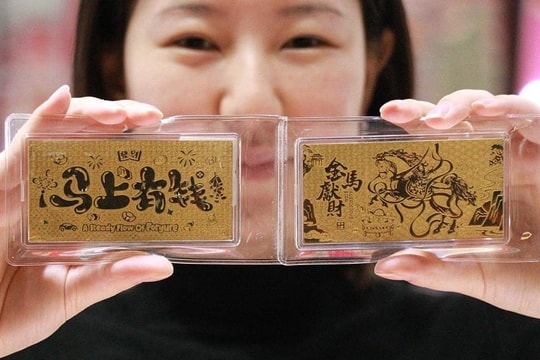 马上有钱
A Steady Flow Of Foryure
金馬
獻財